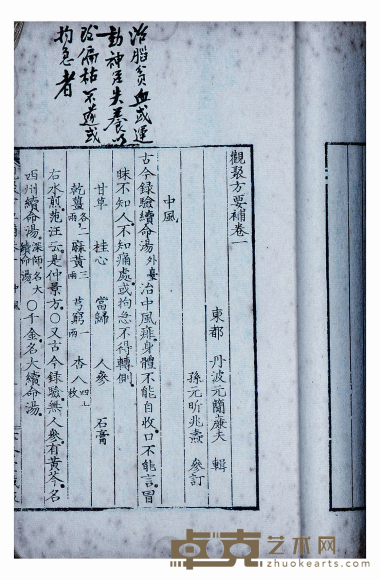 治腦貧血或運
動神經失養以
致偏枯不遂或
拘急者
觀聚方要補卷一
東都 丹波元簡廉夫 輯
孫元昕兆燾 參訂
中風
古今錄驗續命湯外臺治中風痱身體不能自收口不能言冒
昧不知人不知痛處或拘急不得轉側
甘草 桂心 當歸 人參 石膏
乾薑各二兩 麻黃三兩 芎窮一兩 杏人四十枚
右水煎范汪云是仲景方○又古今錄驗無人參有黃芩名
西州續命湯深師名大續命湯○千金名大續命湯
卓克艺术网
zhuokearts.com